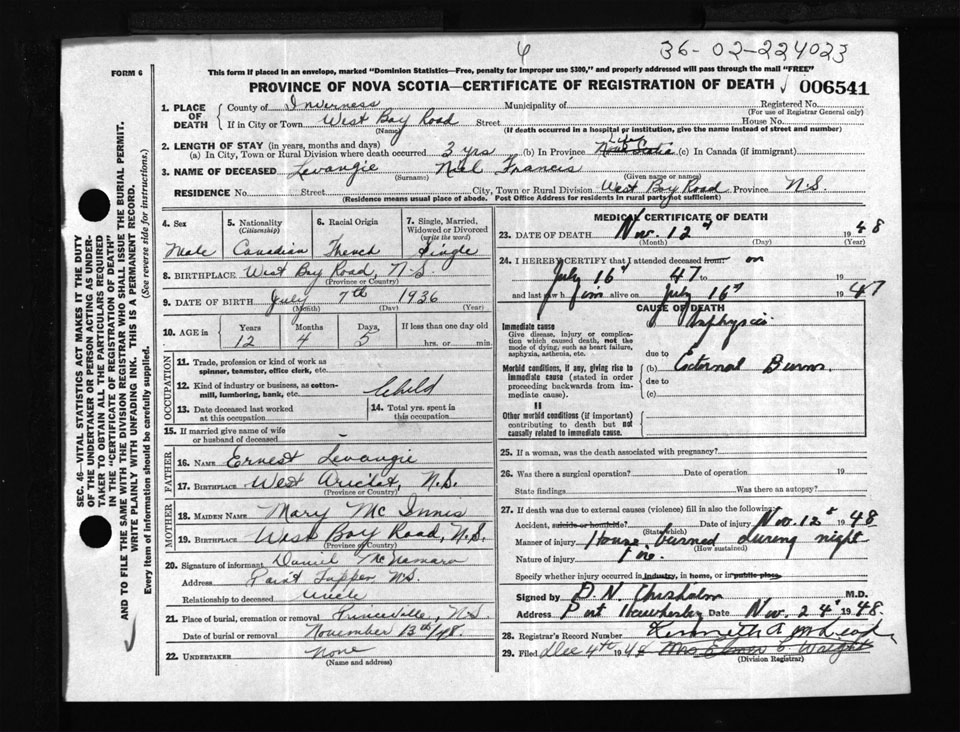 6 36-02-224023
FORM 6
This form if placed in an envelope, marked "Dominion Statistics—Free, penalty for improper use $300," and properly addressed will pass through the mail "FREE"
PROVINCE OF NOVA SCOTIA—CERTIFICATE OF REGISTRATION OF DEATH 006541
1. PLACE OF DEATH
County of Inverness Municipality of Registered No.
(For use of Registrar General only)
If in City or Town West Bay Road Street House No.
(Name) (If death occurred in a hospital or institution, give the name instead of street and number)
2. LENGTH OF STAY (in years, months and days)
Life
(a) In City, Town or Rural Division where death occurred 3 yrs (b) In Province Nova Scotia (c) In Canada (if immigrant)
3. NAME OF DECEASED Levangie Neil Francis
(Surname) (Given name or names)
RESIDENCE No. Street City, Town or Rural Division West Bay Road, Province N.S.
(Residence means usual place of abode. Post Office Address for residents in rural parts not sufficient)
4. Sex
Male
5. Nationality
(Citizenship)
Canadian
6. Racial Origin
French
7. Single, Married, Widowed or Divorced
(write the word)
Single
8. BIRTHPLACE West Bay Road, N.S.
(Province or Country)
9. DATE OF BIRTH July 7th 1936
(Month) (Day) (Year)
10. AGE in Years Months Days If less than one day old
12 4 5 hrs. or min.
OCCUPATION
11. Trade, profession or kind of work as
spinner, teamster, office clerk, etc.
12. Kind of industry or business, as cotton-
mill, lumbering, bank, etc. Child
13. Date deceased last worked
at this occupation
14. Total yrs. spent in
this occupation
15. If married give name of wife
or husband of deceased -
FATHER
16. NAME Ernest Levangie
17. BIRTHPLACE West Arichat, N.S.
(Province or Country)
MOTHER
18. MAIDEN NAME Mary Mc Innis
19. BIRTHPLACE West Bay Road, N.S.
(Province or Country)
20. Signature of informant Daniel McNamara
Address Point Tupper, N.S.
Relationship to deceased Uncle
21. Place of burial, cremation or removal Princeville, N.S.
Date of burial or removal November 13th/48.
22. UNDERTAKER None
(Name and address)
MEDICAL CERTIFICATE OF DEATH
23. DATE OF DEATH Nov. 12th 1948
(Month) (Day) (Year)
24. I HEREBY CERTIFY that I attended deceased from: on
July 16th 47 to 19
and last saw h im alive on July 16th 1947
CAUSE OF DEATH
Immediate cause
Give disease, injury or complication which caused death, not the mode of dying, such as heart failure, asphyxia, asthenia, etc.
Asphyxia
due to
Morbid conditions, if any, giving rise to immediate cause (stated in order proceeding backwards from immediate cause).
(b) External Burns.
due to
(c)
II
Other morbid conditions (if important) contributing to death but not causally related to immediate cause.
25. If a woman, was the death associated with pregnancy?
26. Was there a surgical operation? Date of operation 19
State findings Was there an autopsy?
27. If death was due to external causes (violence) fill in also the following:
Accident, suicide or homicide? Date of injury Nov. 12th 1948
(State which)
Manner of injury House burned during night
(How sustained)
Nature of injury Fire.
Specify whether injury occurred in industry, in home, or in public place
Signed by P. N. Chisholm M.D.
Address Port Hawkesbury Date Nov. 24th 1948.
28. Registrar's Record Number Kenneth A.
29. Filed Dec 4th 1948 Mrs Elmer C. Wright
(Division Registrar)
SEC. 46—VITAL STATISTICS ACT MAKES IT THE DUTY
OF THE UNDERTAKER OR PERSON ACTING AS UNDER-
TAKER TO OBTAIN ALL THE PARTICULARS REQUIRED
IN THE "CERTIFICATE OF REGISTRATION OF DEATH"
AND TO FILE THE SAME WITH THE DIVISION REGISTRAR WHO SHALL ISSUE THE BURIAL PERMIT.
WRITE PLAINLY WITH UNFADING INK. THIS IS A PERMANENT RECORD.
Every item of information should be carefully supplied. (See reverse side for instructions.)